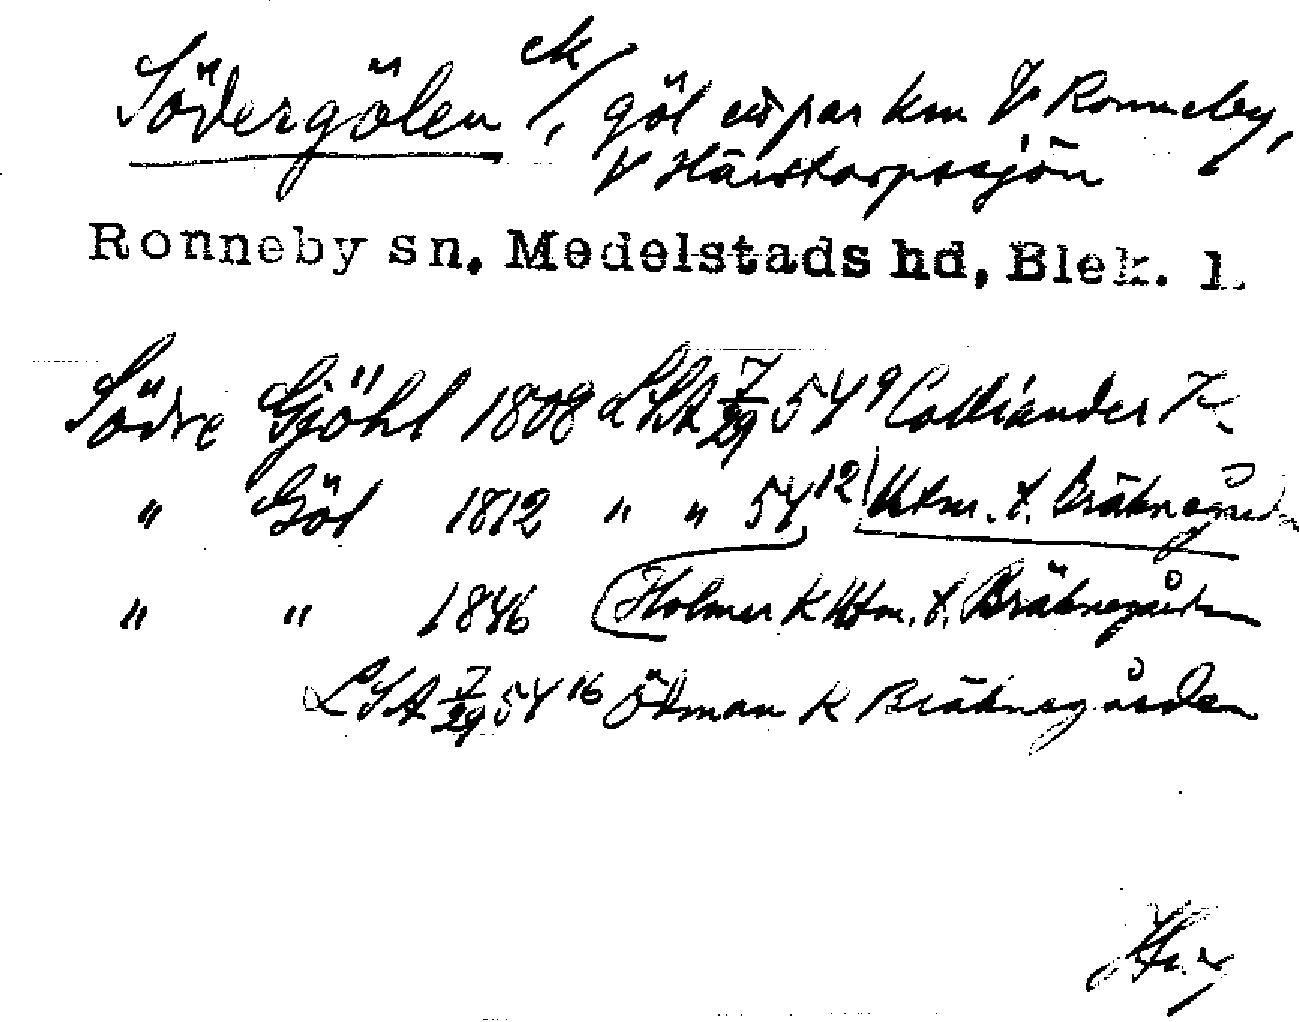 Södergölen ek/, göl ett par km V Ronneby,
V Härstorpssjön
Ronneby sn, Medelstads hd, Blek. l.
Södre Gjöhl 1808 LSA 7/29 54⁹ Colliander K
" Göl 1812 " " 54¹² Utm. t. Bräknegården
" " 1846 Holmer K Utm. t. Bräknegården
LSA 7/29 54¹⁶ Öhman K Bräknegården